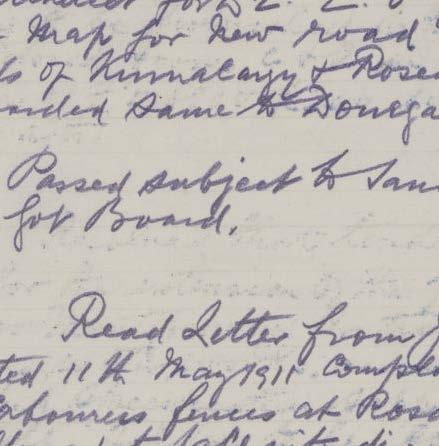 for
Map for New road
of Kinnalargy & Rose
arded same to Donega
Passed subject to San
Gov Board.
Read Letter from J
ted 11th May 1911 Compla
abourers fences at Rosa